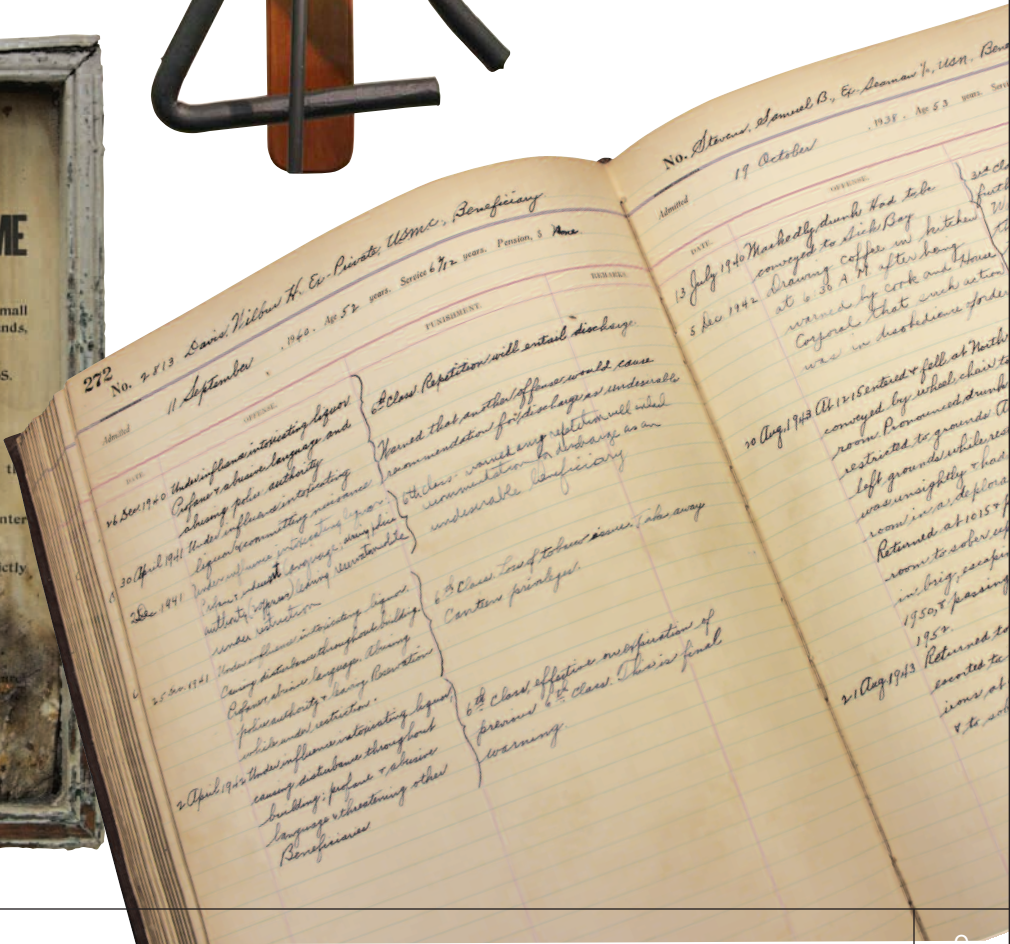 ME
mall
nds,
s.
nter
ctly
272
No. 2813 Davis, Wilbur H. Ex-Private, USMC, Beneficiary
Admitted 11 September , 1940. Age 52 years. Service 6 9/12 years. Pension, $ None
DATE. OFFENSE. PUNISHMENT. REMARKS.
26 Dec 1940 Under influence intoxicating liquor
Profane & abusive language and
abusing police authority
6th Class Repetition will entail discharge.
30 April 1941 Under influence intoxicating
liquor & committing nuisance
Warned that another offense would cause
recommendation for discharge as undesirable
2 Dec 1941 Under influence intoxicating liquor.
Profane & indecent language, abusing police
authority leaving reservation while
under restriction
6th class. warned any repetition will entail
recommendation for discharge as an
undesirable beneficiary
25 1941 Under influence intoxicating liquor.
Causing disturbance throughout building
Profane, abusive language. Abusing
police authority & leaving Reservation
while under restriction.
6th Class. Loss of tobacco issues. Take away
Canteen privileges.
2 April 1942 Under influence intoxicating liquor,
causing disturbance throughout
building; profane & abusive
language & threatening other
Beneficiaries
6th Class, effective on expiration of
previous 6th Class. This is final
warning.
No. Stevens, Samuel B., Ex-Seaman 1/c, USN,
Admitted 19 October , 1938. Age 53 years.
DATE. OFFENSE.
13 July 1940 Markedly drunk Had to be
conveyed to Sick Bay
5 Dec 1942 Drawing coffee in kitchen
at 6:30 A M after being
warned by cook and House
Corporal that such action
was in disobedience of order
3rd Cl
20 Aug. 1943 At 1215 entered & fell at North
conveyed by wheel chair to
room. Pronounced drunk
restricted to grounds.
left grounds while res
was unsightly & had
room in a deplora
Returned at 1015 &
room to sober up
in brig, escapi
1950, & passing
1952.
21 Aug 1943 Returned to
escorted to
irons, at
& to sob